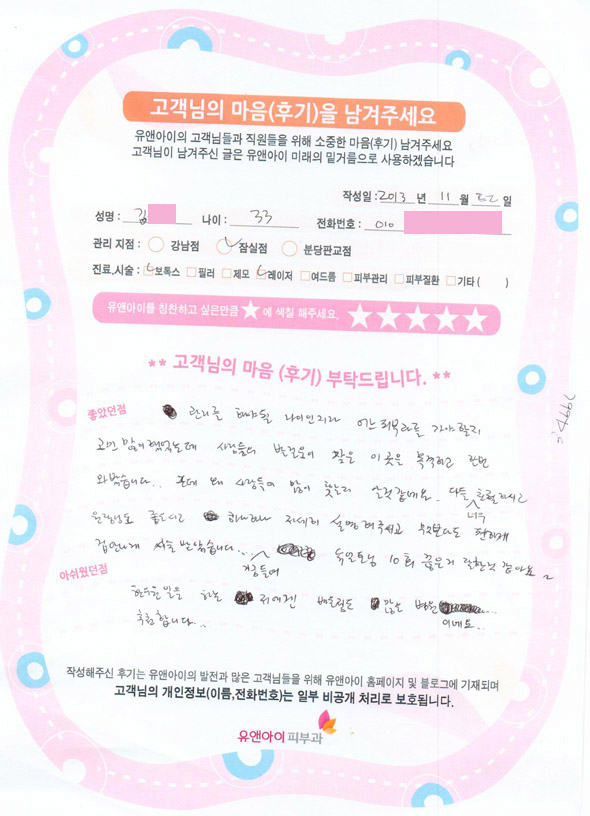 고객님의 마음(후기)을 남겨주세요
유앤아이의 고객님들과 직원들을 위해 소중한 마음(후기) 남겨주세요
고객님이 남겨주신 글은 유앤아이 미래의 밑거름으로 사용하겠습니다
작성일 : 2013 년 11 월 22 일
성명 : 김 나이 : 33 전화번호 : 010
관리 지점 : 강남점 잠실점 분당판교점
진료,시술 : 보톡스 필러 제모 레이저 여드름 피부관리 피부질환 기타 ( )
유앤아이를 칭찬하고 싶은만큼 ★ 에 색칠 해주세요. ★★★★★
** 고객님의 마음 (후기) 부탁드립니다. **
좋았던점
관리를 해야될 나이인지라 어느 피부과를 가야할지
고민 많이 했었는데 사람들의 발걸음이 잦은 이곳을 목격하고 한번
와봤습니다.. 근데 왜 사람들이 많이 찾는지 알것 같네요. 다들 친절하시고
너무
원장님도 좋으시고 하나하나 자세히 설명해주시고 무엇보다도 편하게
겁안나게 시술 받았습니다.. 듀얼토닝 10회 끊은거 잘한것 같아요~
아쉬웠던점
하는 저에겐 많은 병원
이네요..
추천합니다..
작성해주신 후기는 유앤아이의 발전과 많은 고객님들을 위해 유앤아이 홈페이지 및 블로그에 기재되며
고객님의 개인정보(이름,전화번호)는 일부 비공개 처리로 보호됩니다.
유앤아이 피부과